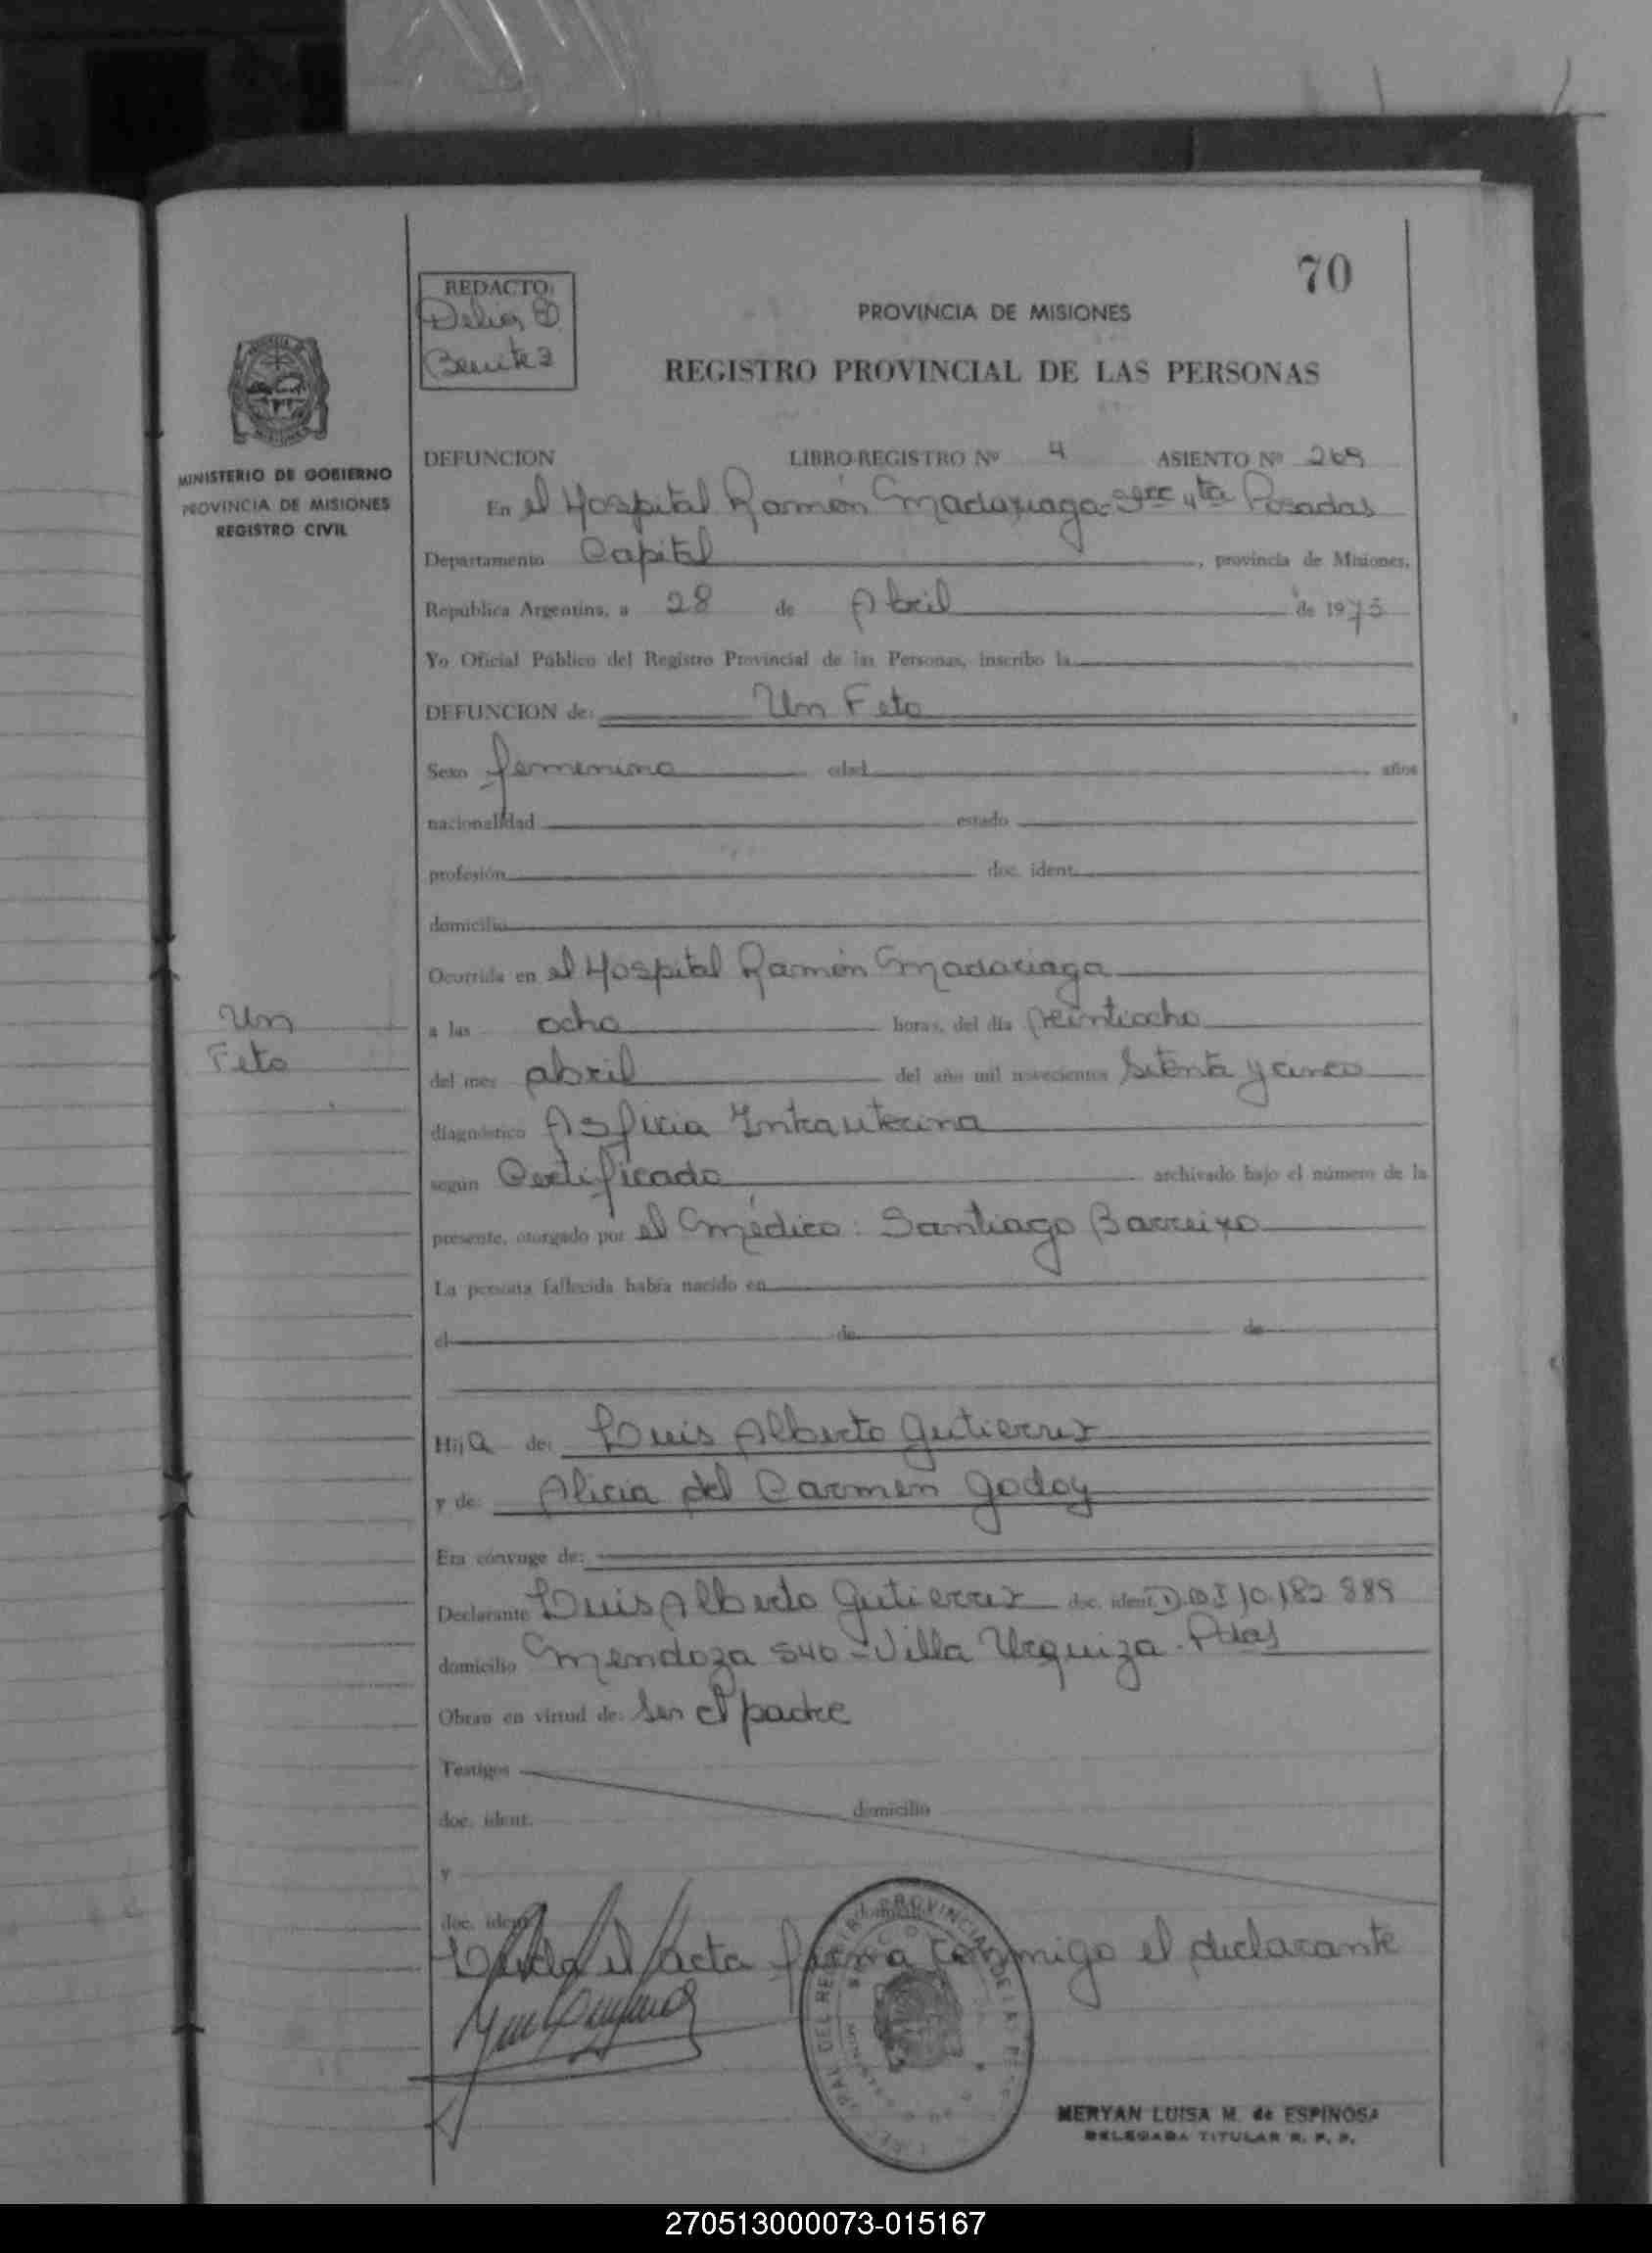 70
REDACTO:
Delia
Benitez
PROVINCIA DE MISIONES
REGISTRO PROVINCIAL DE LAS PERSONAS
MINISTERIO DE GOBIERNO
PROVINCIA DE MISIONES
REGISTRO CIVIL
DEFUNCION LIBRO REGISTRO Nº 4 ASIENTO Nº 269
En el Hospital Ramón Madariaga- Secc 4ta Posadas
Departamento Capital, provincia de Misiones,
República Argentina, a 28 de Abril de 1975
Yo Oficial Público del Registro Provincial de las Personas, inscribo la
DEFUNCION de: Un Feto
Sexo femenino edad años
nacionalidad estado
profesión doc. ident.
domicilio
Ocurrida en el Hospital Ramón Madariaga
Un
Feto
a las ocho horas, del día veintiocho
del mes abril del año mil novecientos setenta y cinco
diagnóstico Asfixia Intrauterina
según Certificado archivado bajo el número de la
presente, otorgado por el médico: Santiago Barreiro
La persona fallecida había nacido en
el de de
Hija de: Luis Alberto Gutierrez
y de: Alicia del Carmen Godoy
Era cónyuge de:
Declarante Luis Alberto Gutierrez doc. ident. 10.182.889
domicilio Mendoza 540 - Villa Urquiza - Pdas
Obran en virtud de: Ser el padre
Testigos
doc. ident. domicilio
y
doc. ident. domicilio
Leida el acta firma conmigo el declarante
MERYAN LUISA M. de ESPINOSA
DELEGADA TITULAR R. P. P.
270513000073-015167